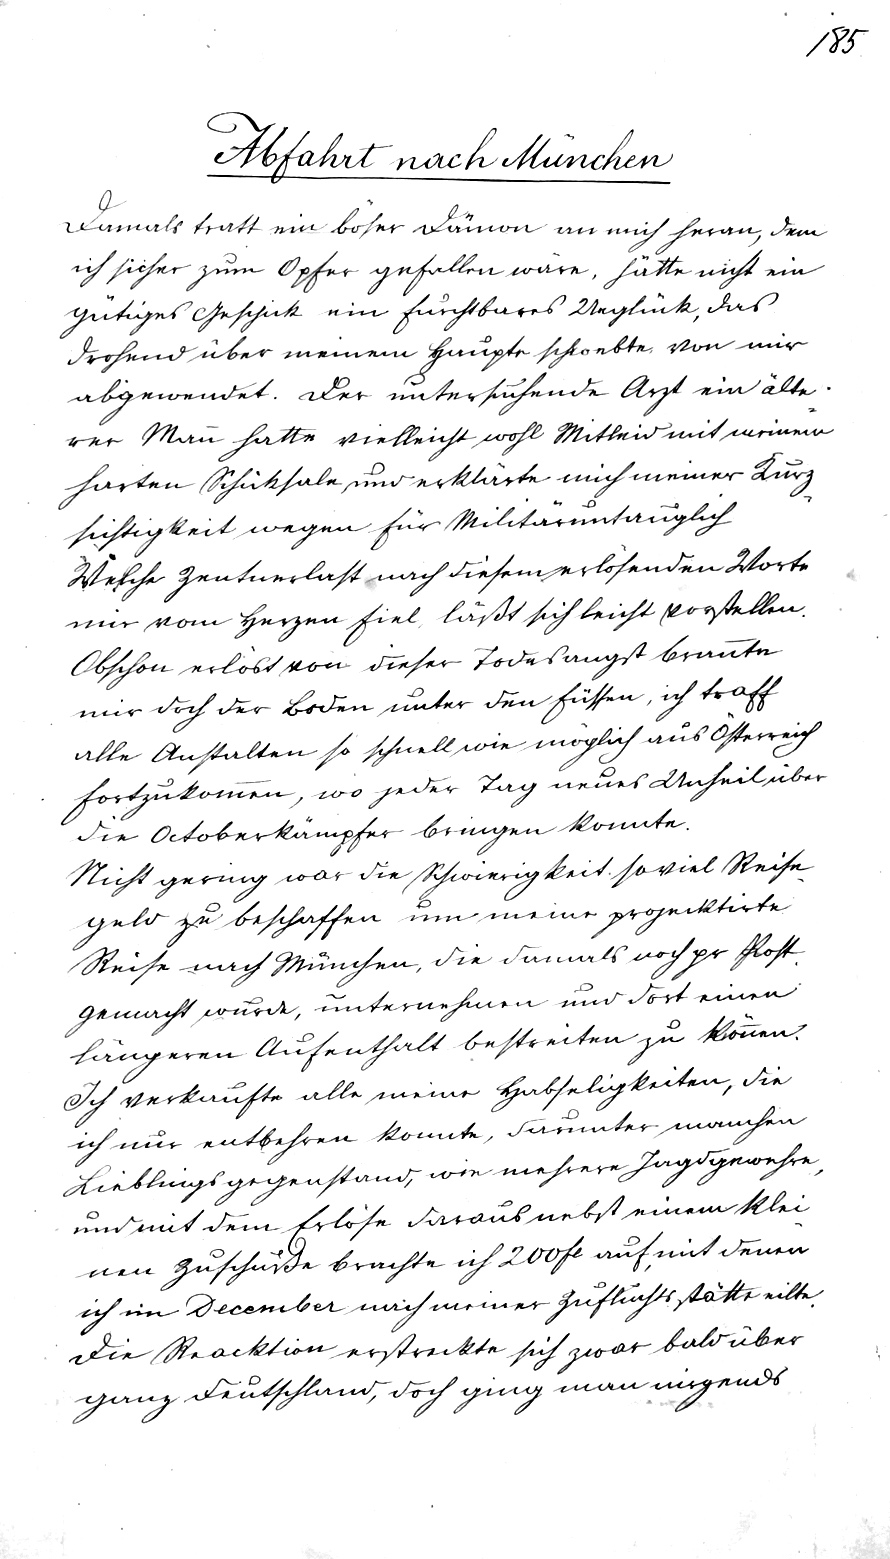 185
Abfahrt nach München
Damals tratt ein böser Dämon an mich heran, dem
ich sicher zum Opfer gefallen wäre, hätte nicht ein
gütiges Geschick ein furchtbares Unglück, das
drohend über meinem Haupte schwebte von mir
abgewendet. Der untersuchende Arzt ein älte-
rer Mañ hatte vielleicht wohl Mitleid mit meinem
harten Schiksale und erklärte mich meiner Kurz-
sichtigkeit wegen für Militäruntauglich
Welche Zentnerlast nach diesem erlösenden Worte
mir vom Herzen fiel, läßt sich leicht vorstellen.
Obschon erlöst von dieser Todesangst brañte
mir doch der Boden unter den Füssen, ich traff
alle Anstalten so schnell wie möglich aus Österreich
fortzukom̄en, wo jeder Tag neues Unheil über
die Octoberkämpfer bringen konnte.
Nicht gering war die Schwierigkeit soviel Reise-
geld zu beschaffen um meine projecktirte
Reise nach München, die damals noch pr Post
gemacht wurde, unternehmen und dort einen
längeren Aufenthalt bestreiten zu köñen.
Ich verkaufte alle meine Habseligkeiten, die
ich nur entbehren konnte, darunter manchen
Lieblingsgegenstand, wie mehrere Jagdgewehre,
und mit dem Erlöse daraus nebst einem klei-
nen Zuschuße brachte ich 200 fl auf, mit denen
ich im December nach meiner Zufluchtsstätte eilte.
Die Reacktion erstreckte sich zwar bald über
ganz Deutschland, doch ging man nirgends